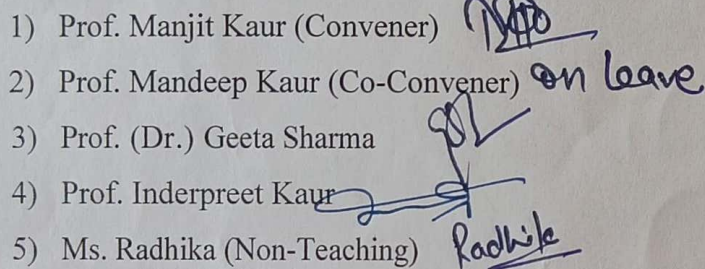 1) Prof. Manjit Kaur (Convener)
2) Prof. Mandeep Kaur (Co-Convener) on leave
3) Prof. (Dr.) Geeta Sharma
4) Prof. Inderpreet Kaur
5) Ms. Radhika (Non-Teaching) Radhika